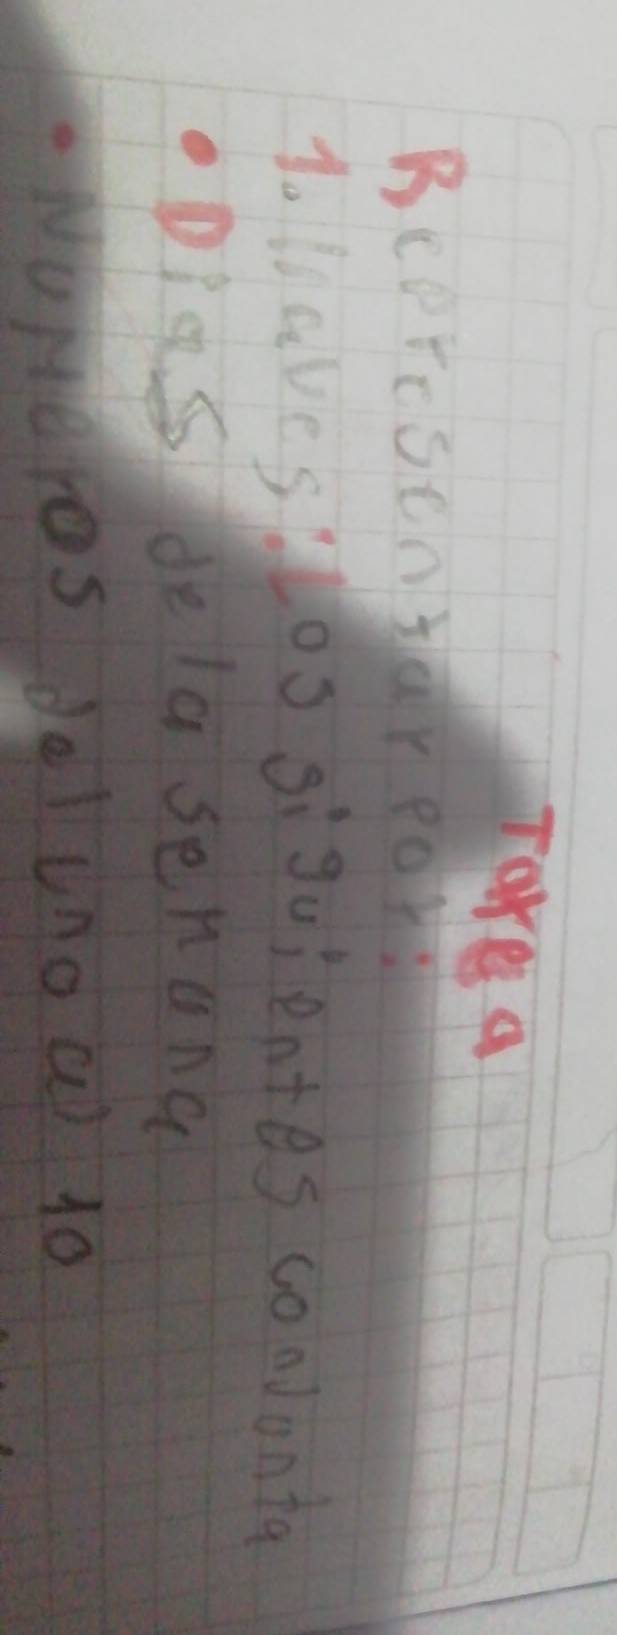 Tarea
Representar por:
1. llaves: Los siguientes conJunta
• Dias de la semana
• NuMeros del uno al 10